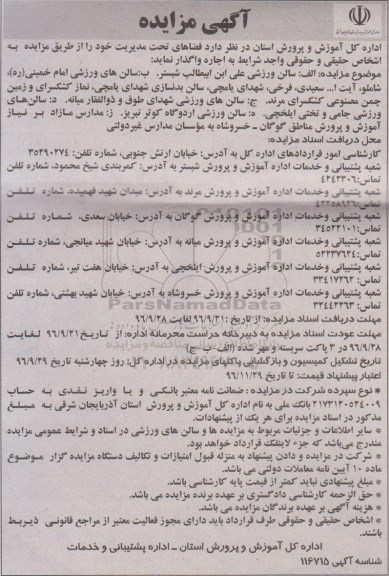 آگهی مزایده
اداره کل آموزش و پرورش استان در نظر دارد فضاهای تحت مدیریت خود را از طریق مزایده به
اشخاص حقیقی و حقوقی واجد شرایط به اجاره واگذار نماید:
موضوع مزایده: الف: سالن ورزشی علی ابن ابیطالب شبستر. ب:سالن های ورزشی امام خمینی(ره)،
شاملو، آیت ا... سعیدی، فرخی، شهدای یامچی، سالن بدنسازی شهدای یامچی، نماز کشکسرای و زمین
چمن مصنوعی کشکسرای مرند. ج: سالن های ورزشی شهدای طوق و ذوالفقار میانه. د: سالن‌های
ورزشی جامی و تختی ایلخچی. ه: سالن ورزشی اردوگاه کوثر تبریز. ز: مدارس مازاد بر نیاز
آموزش و پرورش مناطق گوگان - خسروشاه به مؤسسان مدارس غیردولتی
محل دریافت اسناد مزایده:
کارشناسی امور قراردادهای اداره کل به آدرس: خیابان ارتش جنوبی، شماره تلفن: ۳۵۲۹۰۲۷۴
شعبه پشتیبانی و خدمات اداره آموزش و پرورش شبستر به آدرس: کمربندی شیخ محمود، شماره تلفن
تماس:۴۲۴۲۳۰۶
شعبه پشتیبانی وخدمات اداره آموزش و پرورش مرند به آدرس: میدان شهید فهمیده، شماره تلفن
شعبه پشتیبانی وخدمات اداره آموزش و پرورش گوگان به آدرس: خیابان سعدی، شماره تلفن
تماس:۳۴۵۲۲۱۰۱
شعبه پشتیبانی وخدمات اداره آموزش و پرورش میانه به آدرس: خیابان شهید میانجی، شماره تلفن
تماس: ۵۲۲۳۷۶۲۴
شعبه پشتیبانی وخدمات اداره آموزش و پرورش ایلخچی به آدرس: خیابان هفت تیر، شماره تلفن
تماس: ۳۳۴۱۷۲۶۲
شعبه پشتیبانی وخدمات اداره آموزش و پرورش خسروشاه به آدرس: خیابان شهید بهشتی، شماره تلفن
تماس: ۳۲۴۴۲۲۶۳
مهلت دریافت اسناد مزایده: از تاریخ ۹۶/۹/۲۱ لغایت ۹۶/۹/۲۸
مهلت عودت اسناد مزایده به دبیرخانه حراست محرمانه اداره: از تاریخ ۹۶/۹/۲۱ لغایت
۹۶/۹/۲۸ در ۳ پاکت سربسته و مهر شده (الف - ب - ج)
تاریخ تشکیل کمیسیون و بازگشایی پاکتهای مزایده در اداره کل: روز چهارشنبه تاریخ ۹۶/۹/۲۹
اعتبار پیشنهاد قیمت: تا تاریخ ۹۶/۱۱/۲۹
* نوع سپرده شرکت در مزایده: ضمانت نامه معتبر بانکی و یا واریز نقدی به حساب
۲۱۷۳۱۲۰۵۲۴۰۰۹ بانک ملی به نام اداره کل آموزش و پرورش استان آذربایجان شرقی به مبلغ
مذکور در اسناد مزایده برای هر یک از پیشنهادات.
* سایر اطلاعات و جزئیات مربوط به مزایده ها و سالن های ورزشی در اسناد و شرایط عمومی مزایده
مندرج می‌باشد که جزء لاینفک قرارداد خواهد بود.
* شرکت در مزایده و دادن پیشنهاد به منزله قبول امتیازات و تکالیف دستگاه مزایده گزار موضوع
ماده ۱۰ آیین نامه معاملات دولتی می باشد.
* مبلغ پیشنهادی نباید کمتر از قیمت پایه کارشناسی باشد.
* حق الزحمه کارشناسی دادگستری بر عهده برنده مزایده می باشد.
* هزینه آگهی بر عهده برندگان مزایده می باشد.
* اشخاص حقیقی و حقوقی طرف قرارداد باید دارای مجوز فعالیت معتبر از مراجع قانونی ذیربط
باشند.
اداره کل آموزش و پرورش استان - اداره پشتیبانی و خدمات
شناسه آگهی ۱۱۶۷۱۵
ParsNamadData